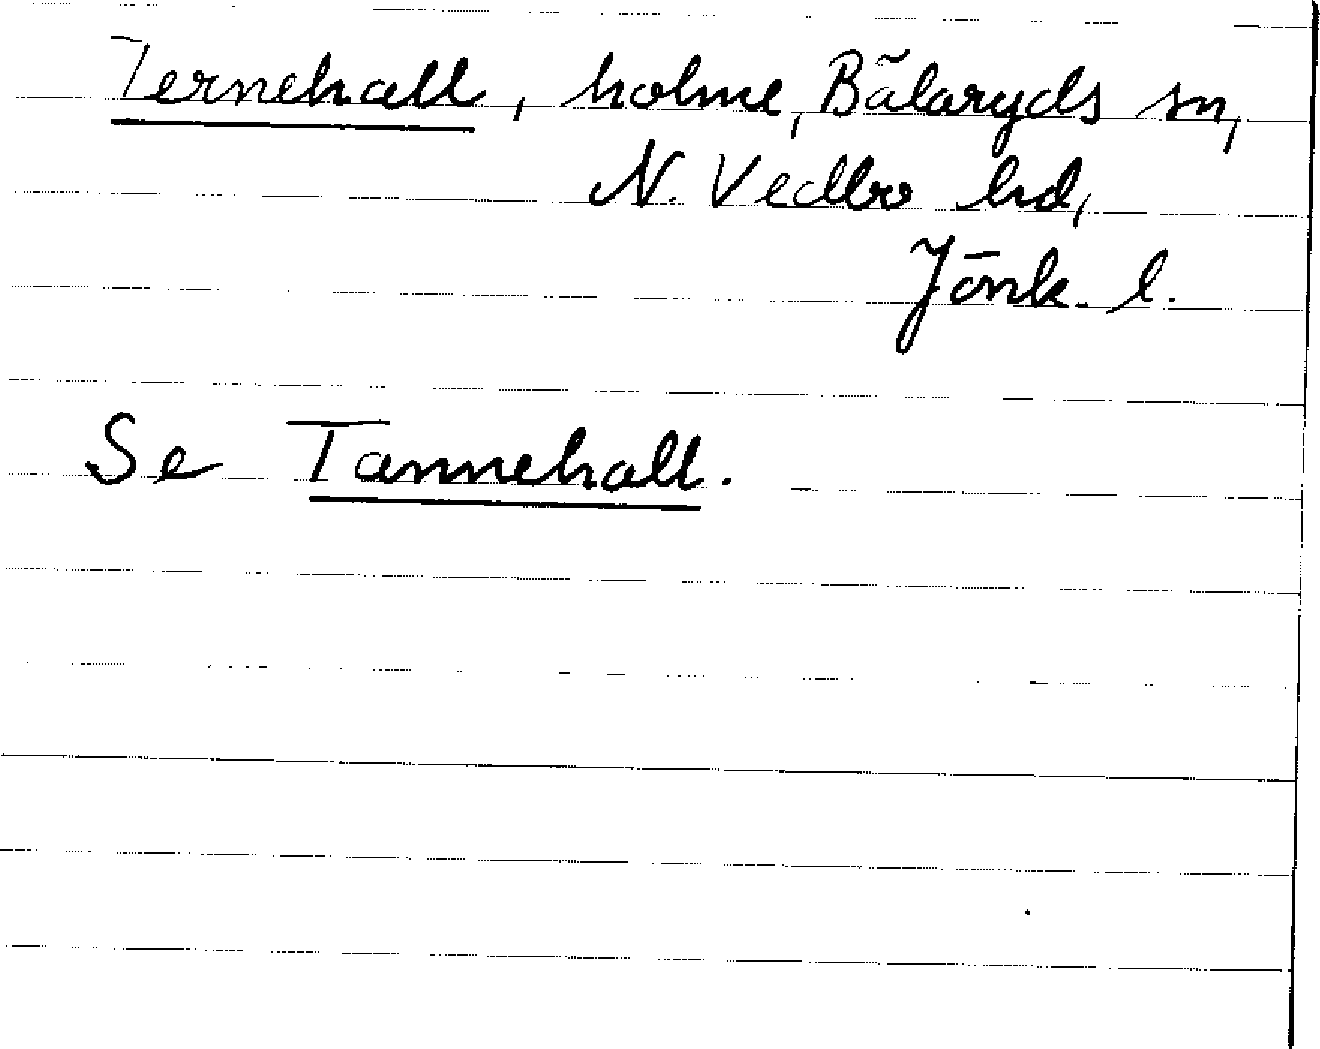 Ternehall, holme, Bälaryds sn,
N. Vedbo hd,
Jönk. l.
Se Tannehall.